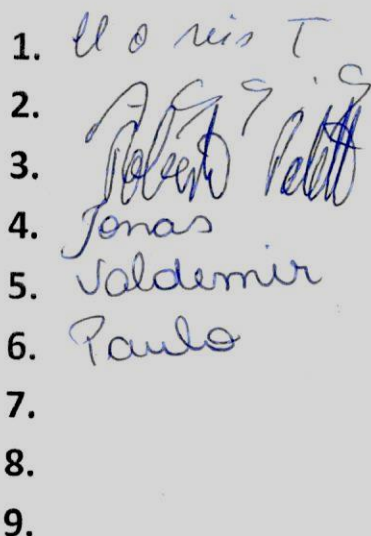 1. U o reis T
2.
3. Roberto
4. Jonas
5. Valdemir
6. Paulo
7.
8.
9.